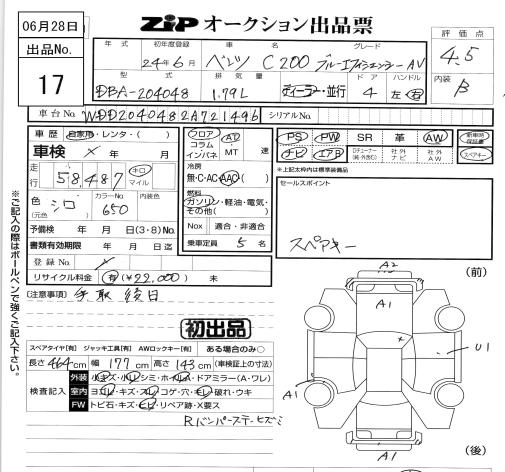 06月28日
出品No.
17
ZIP オークション出品票
評価点
4.5
内装
B
年式 初年度登録 車名 グレード
24年6月 ベンツ C200 ブルーエフィシェンシー AV
型式 排気量 ドア ハンドル
DBA-204048 1.79L ディーラー・並行 4 左・右
車台No. WDD2040482A721496 シリアルNo.
車歴 自家用・レンタ・( )
車検 × 年 月
走行 58,487 キロ マイル
色 (元色) シロ カラーNo. 650 内装色
予備検 年 月 日(3・8)No.
書類有効期限 年 月 日迄
登録No. ×
リサイクル料金 有 ¥22,000 未
(注意事項) 年取 後日
フロア コラム インパネ AT MT 速
冷房
無・C・AC・AAC
燃料
ガソリン・軽油・電気・その他( )
Nox 適合・非適合
乗車定員 5 名
PS PW SR 革 AW 新車時保証書
ナビ エアB Dチューナー(純・外含む) 社外ナビ 社外AW スペアキー
*上記太枠内は標準装備品
セールスポイント
スペアキー
※ご記入の際はボールペンで強くご記入下さい。
初出品
(前)
A2
A1
×
U1
A1
A1
(後)
スペアタイヤ[有] ジャッキ工具[有] AWロックキー[有] ある場合のみ○
長さ 464cm 幅 177cm 高さ 143cm (車検証上の寸法)
検査記入
外装 小キズ・小凹・シミ・ホイルA・ドアミラー(A・ワレ)
室内 ヨゴレ・キズ・スレ・コゲ・穴・モレ・破れ・ウキ
FW トビ石・キズ・ヒビ・リペア跡・X要ス
Rバンパーステーヒズミ